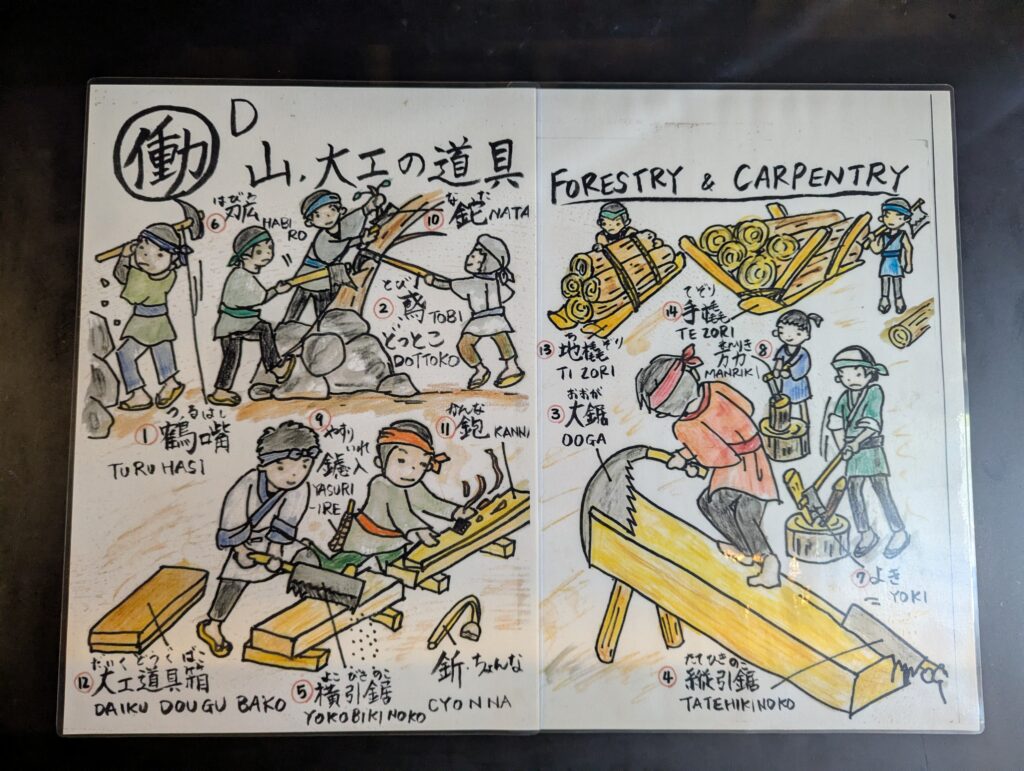 働 D
山、大工の道具
FORESTRY & CARPENTRY
はびろ
⑥ 刃広
HABI
RO
なた
⑩ 鉈 NATA
とび
② 鳶 TOBI
どっとこ
DOTTOKO
つるはし
① 鶴嘴
TURU HASI
⑨ やすり
いれ
鑢入
YASURI
-IRE
かんな
⑪ 鉋 KANNA
だいくどうぐばこ
⑫ 大工道具箱
DAIKU DOUGU BAKO
よこびきのこ
⑤ 横引鋸
YOKOBIKINOKO
釿・ちょんな
CYONNA
てぞり
⑭ 手橇
TE ZORI
ぢぞり
⑬ 地橇
TI ZORI
まんりき
万力 ⑧
MANRIKI
おおが
③ 大鋸
OOGA
⑦ よき
= YOKI
たてびきのこ
④ 縦引鋸
TATEHIKINOKO